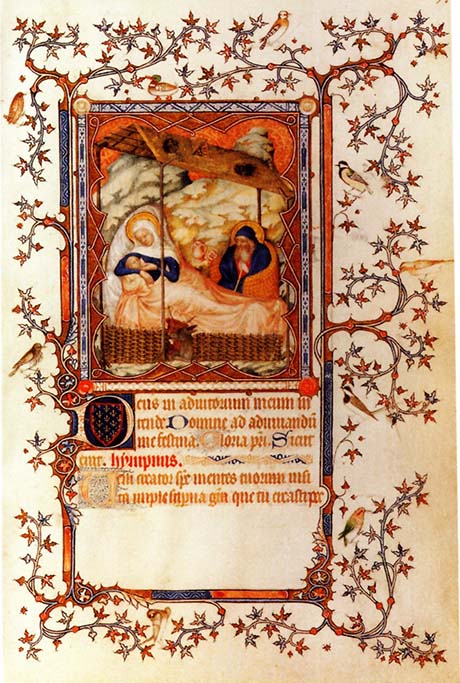 Deus in adiutorium meum in
tende. Domine ad adiuuandū
me festina. Gloria pri. Sicut
erat. hympnus.
Veni creator sp̄c mentes tuorum uisi
ta imple sup̄na grā que tu creasti pe